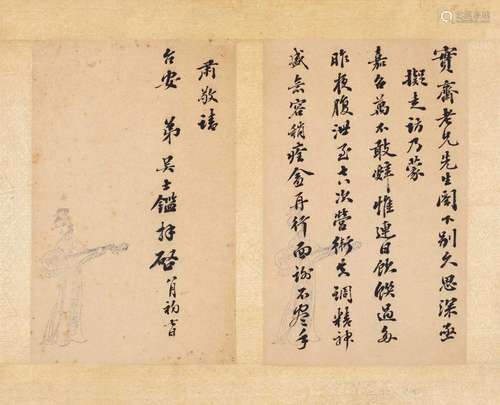 寶齋老兄先生閣下別久思深亟
擬走訪乃蒙
嘉召萬不敢辭惟連日飲饌過多
昨夜腹泄至七八次營衛失調精神
容稍痊愈再行面謝不盡手
肅敬請
台安 弟吳士鑑拜啓 月初